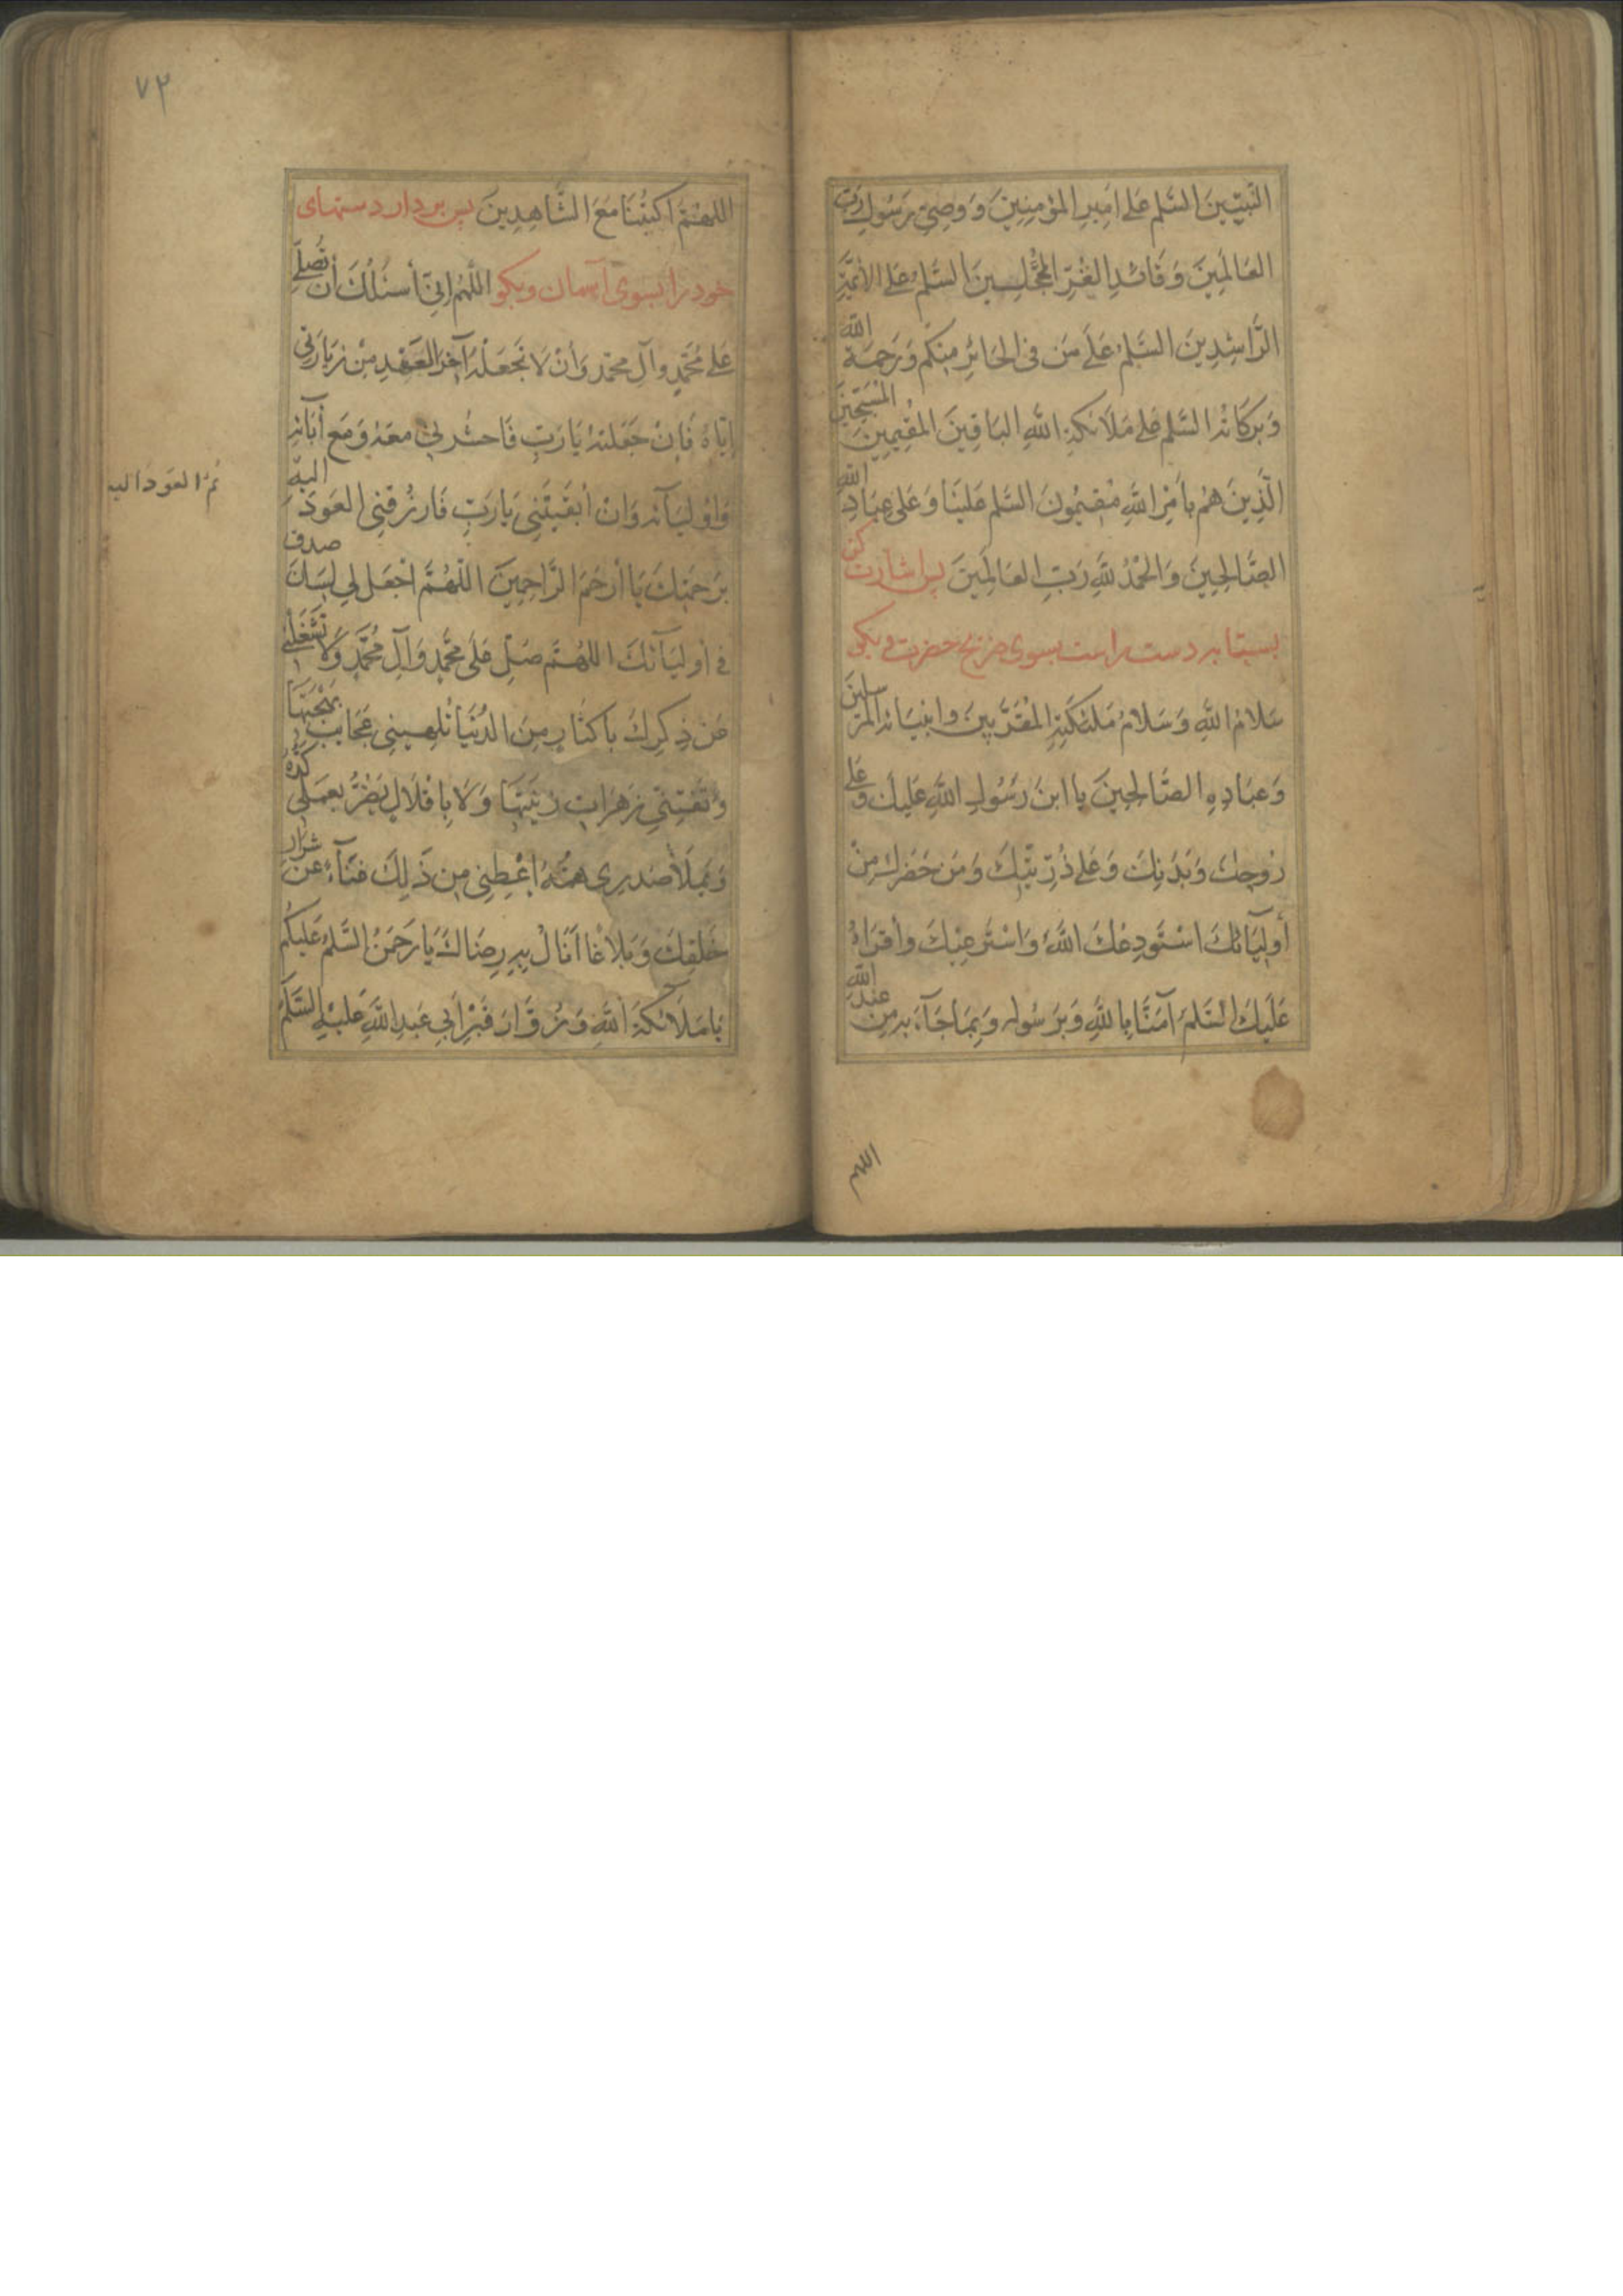 النَّبِيّينَ السَّلم عَلى اَمِيرِ المؤمِنِينَ وَ وَصِيِّ رَسُولِ رَبِّ
العَالَمِينَ وَ قَائدِ الغُرِّ المُحَجَّلِينَ السَّلَمُ عَلى الأئمَّةِ
الرَّاشِدِينَ السَّلَمُ عَلَى مَن فِى الحَائِرِ مِنكُم وَ رَحمَةُ اللّٰهِ
وَ بَرَكَاتُه السَّلم عَلى مَلَائكَةِ اللّٰهِ البَاقِينَ المُقِيمِينَ المُسَبِّحِينَ
الَّذِينَ هُم بِاَمرِ اللّٰهِ مُقِيمُونَ السَّلم عَلَينَا وَ عَلى عِبَادِ اللّٰهِ
الصَّالِحِينَ وَ الحَمْدُ لِلّٰهِ رَبِّ العَالَمِينَ پس اشارت كن
بسبابه دست راست بسوى ضريح حضرت و بكو
سَلَامُ اللّٰهِ وَ سَلَامُ مَلئكَتِهِ المُقَرَّبِينَ و انبِيَائه المُرسلينَ
وَ عِبَادِهِ الصَّالِحِينَ يا ابنَ رَسُولِ اللّٰهِ عَلَيكَ وَ عَلى
رُوحِكَ وَ بَدَنِكَ وَ عَلى ذُرِّيَّتِكَ وَ مَن حَضَرَكَ مِنْ
أَولِيَائكَ اسْتَودِعُكَ اللّٰهَ وَ اسْتَرعِيكَ وأقرَاُ
عَلَيكَ السَّلَمَ آمَنَّا بِاللّٰهِ وَ بِرَسُولِه وَ بِمَا جَآءَ بِه مِن عِندِ اللّٰه
اللهم
٧٢
اللّهُمَّ اكتُبْنَا مَعَ الشَّاهِدِينَ پس بردار دستهاى
خود را بسوى آسمان و بكو اللّهُم اِنّى أسئَلُكَ أن تُصَلِّىَ
عَلى مُحَمَّدٍ وآلِ محمّد وَأنْ لَا تَجعَلهُ آخِرَ العَهْدِ مِنْ زِيَارَتى
إيّاهُ فَإن جَعَلتَهُ يَا رَبِّ فَاحشُرنِى معَهُ وَ مَعَ أبَائهِ
وَ اَوْلِيَآئه وَ اِنْ أبقَيتَنِى يَا رَبِّ فَارزُقنِى العَودَ اليه
ثمّ العَود اليه
بِرَحمَتِكَ يَا أرحَمَ الرَّاحِمِينَ اللّهُمَّ اجْعَل لِى لِسَانَ صدق
فِى أَولِيَآئكَ اللهُمّ صَلِّ عَلَى مُحَمَّدٍ وَ آلِ مُحَمَّدٍ وَ لَا تشْغَلنِى
عَن ذِكرِكَ بِاكثَارٍ مِنَ الدُّنيَا تُلهِينِى عَجَايِبُ بَهجَتِهَا
وَ تَفتِنّى زَهَرَات زِينَتِهَا وَ لَا بِاِقْلَالٍ يَضُرُّ بِعَمَلى كَدُّهُ
وَ يَملَأ صَدرِى هَمُّهُ اَعْطِنِى مِن ذَلِكَ غِنَاًء عَن شرَار
خَلقِكَ وَ بَلَاغًا أنَالُ بِه رِضَاكَ يَا رَحمَنُ السَّلمُ عَلَيكُم
يَا مَلَائكَةَ اللّٰهِ وَ زُوَّارَ قَبْرِ أَبِى عَبدِ اللّٰهِ عَلَيْهِ السَّلَمُ